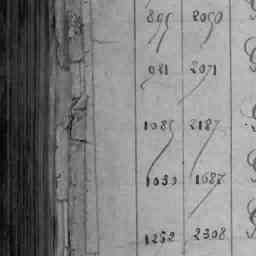 895 2050
981 2071
1085 2187
1033 1687
1252 2308